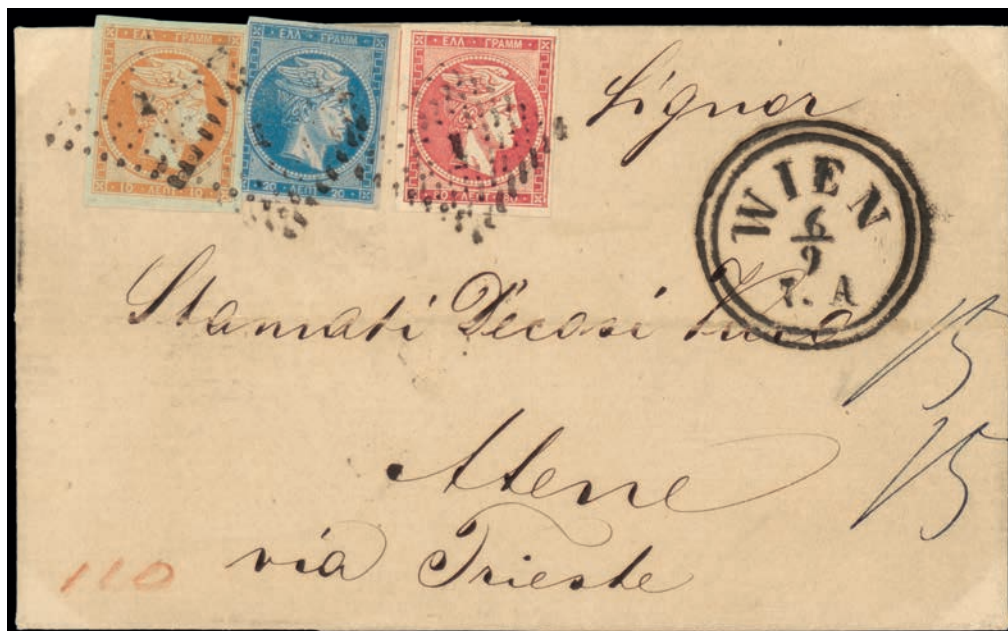 ΕΛΛ ΓΡΑΜΜ
10 ΛΕΠΤ 10
ΕΛΛ ΓΡΑΜΜ
20 ΛΕΠΤ 20
ΕΛΛ ΓΡΑΜΜ
ΛΕΠΤ 80
1
1
Signor
WIEN
6
9
7. A
Stamati Decasi
15
Atene
15
via Trieste
110